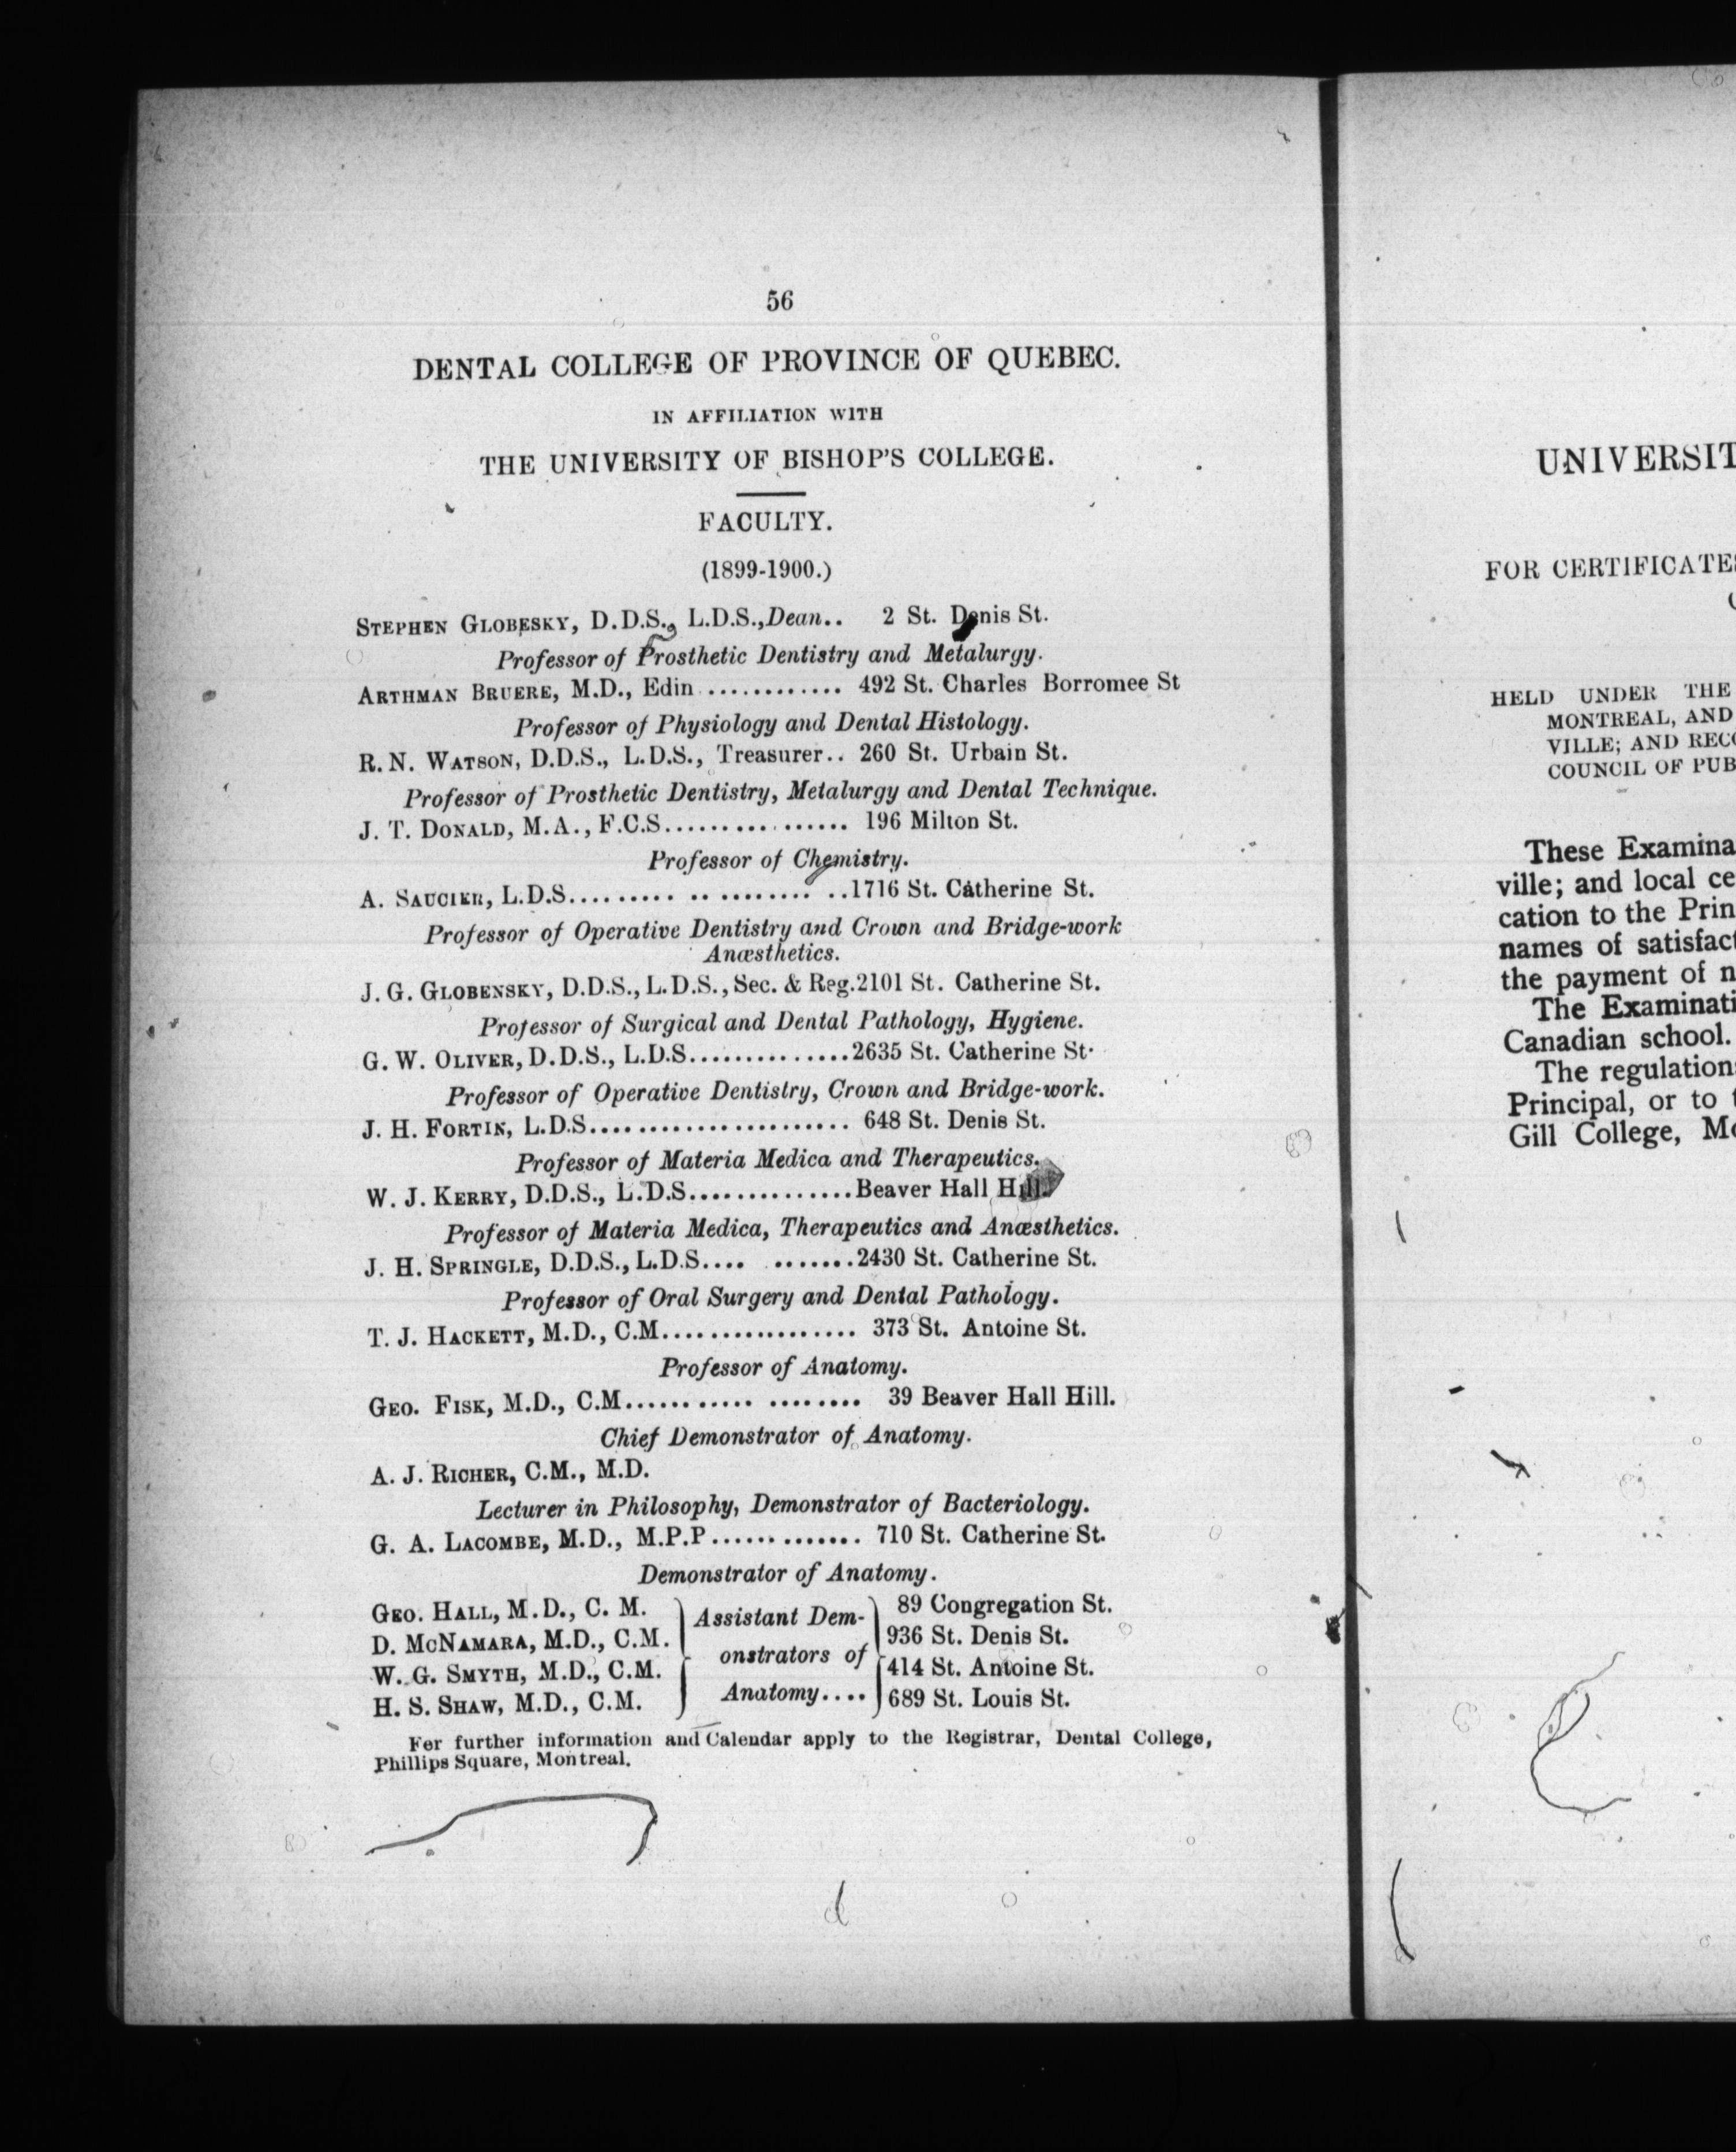 56
DENTAL COLLEGE OF PROVINCE OF QUEBEC.
IN AFFILIATION WITH
THE UNIVERSITY OF BISHOP'S COLLEGE.
FACULTY.
(1899-1900.)
STEPHEN GLOBESKY, D.D.S., L.D.S., Dean.. 2 St. Denis St.
Professor of Prosthetic Dentistry and Metalurgy.
ARTHMAN BRUERE, M.D., Edin ............ 492 St. Charles Borromee St
Professor of Physiology and Dental Histology.
R. N. WATSON, D.D.S., L.D.S., Treasurer.. 260 St. Urbain St.
Professor of Prosthetic Dentistry, Metalurgy and Dental Technique.
J. T. DONALD, M.A., F.C.S................ 196 Milton St.
Professor of Chemistry.
A. SAUCIER, L.D.S......... .. ........ ..1716 St. Catherine St.
Professor of Operative Dentistry and Crown and Bridge-work
Anæsthetics.
J. G. GLOBENSKY, D.D.S., L.D.S., Sec. & Reg.2101 St. Catherine St.
Professor of Surgical and Dental Pathology, Hygiene.
G. W. OLIVER, D.D.S., L.D.S..............2635 St. Catherine St.
Professor of Operative Dentistry, Crown and Bridge-work.
J. H. FORTIN, L.D.S....................... 648 St. Denis St.
Professor of Materia Medica and Therapeutics.
W. J. KERRY, D.D.S., L.D.S...............Beaver Hall Hill.
Professor of Materia Medica, Therapeutics and Anæsthetics.
J. H. SPRINGLE, D.D.S., L.D.S.... .......2430 St. Catherine St.
Professor of Oral Surgery and Dental Pathology.
T. J. HACKETT, M.D., C.M................. 373 St. Antoine St.
Professor of Anatomy.
GEO. FISK, M.D., C.M........... ........ 39 Beaver Hall Hill.
Chief Demonstrator of Anatomy.
A. J. RICHER, C.M., M.D.
Lecturer in Philosophy, Demonstrator of Bacteriology.
G. A. LACOMBE, M.D., M.P.P............. 710 St. Catherine St.
Demonstrator of Anatomy.
GEO. HALL, M.D., C. M. Assistant Dem- 89 Congregation St.
D. MCNAMARA, M.D., C.M. 936 St. Denis St.
W. G. SMYTH, M.D., C.M. onstrators of 414 St. Antoine St.
H. S. SHAW, M.D., C.M. Anatomy.... 689 St. Louis St.
Fer further information and Calendar apply to the Registrar, Dental College,
Phillips Square, Montreal.
UNIVERSIT
FOR CERTIFICATES
HELD UNDER THE
MONTREAL, AND
VILLE; AND RECO
COUNCIL OF PUB
These Examina
ville; and local ce
cation to the Prin
names of satisfact
the payment of n
The Examinati
Canadian school.
The regulations
Principal, or to t
Gill College, Mo